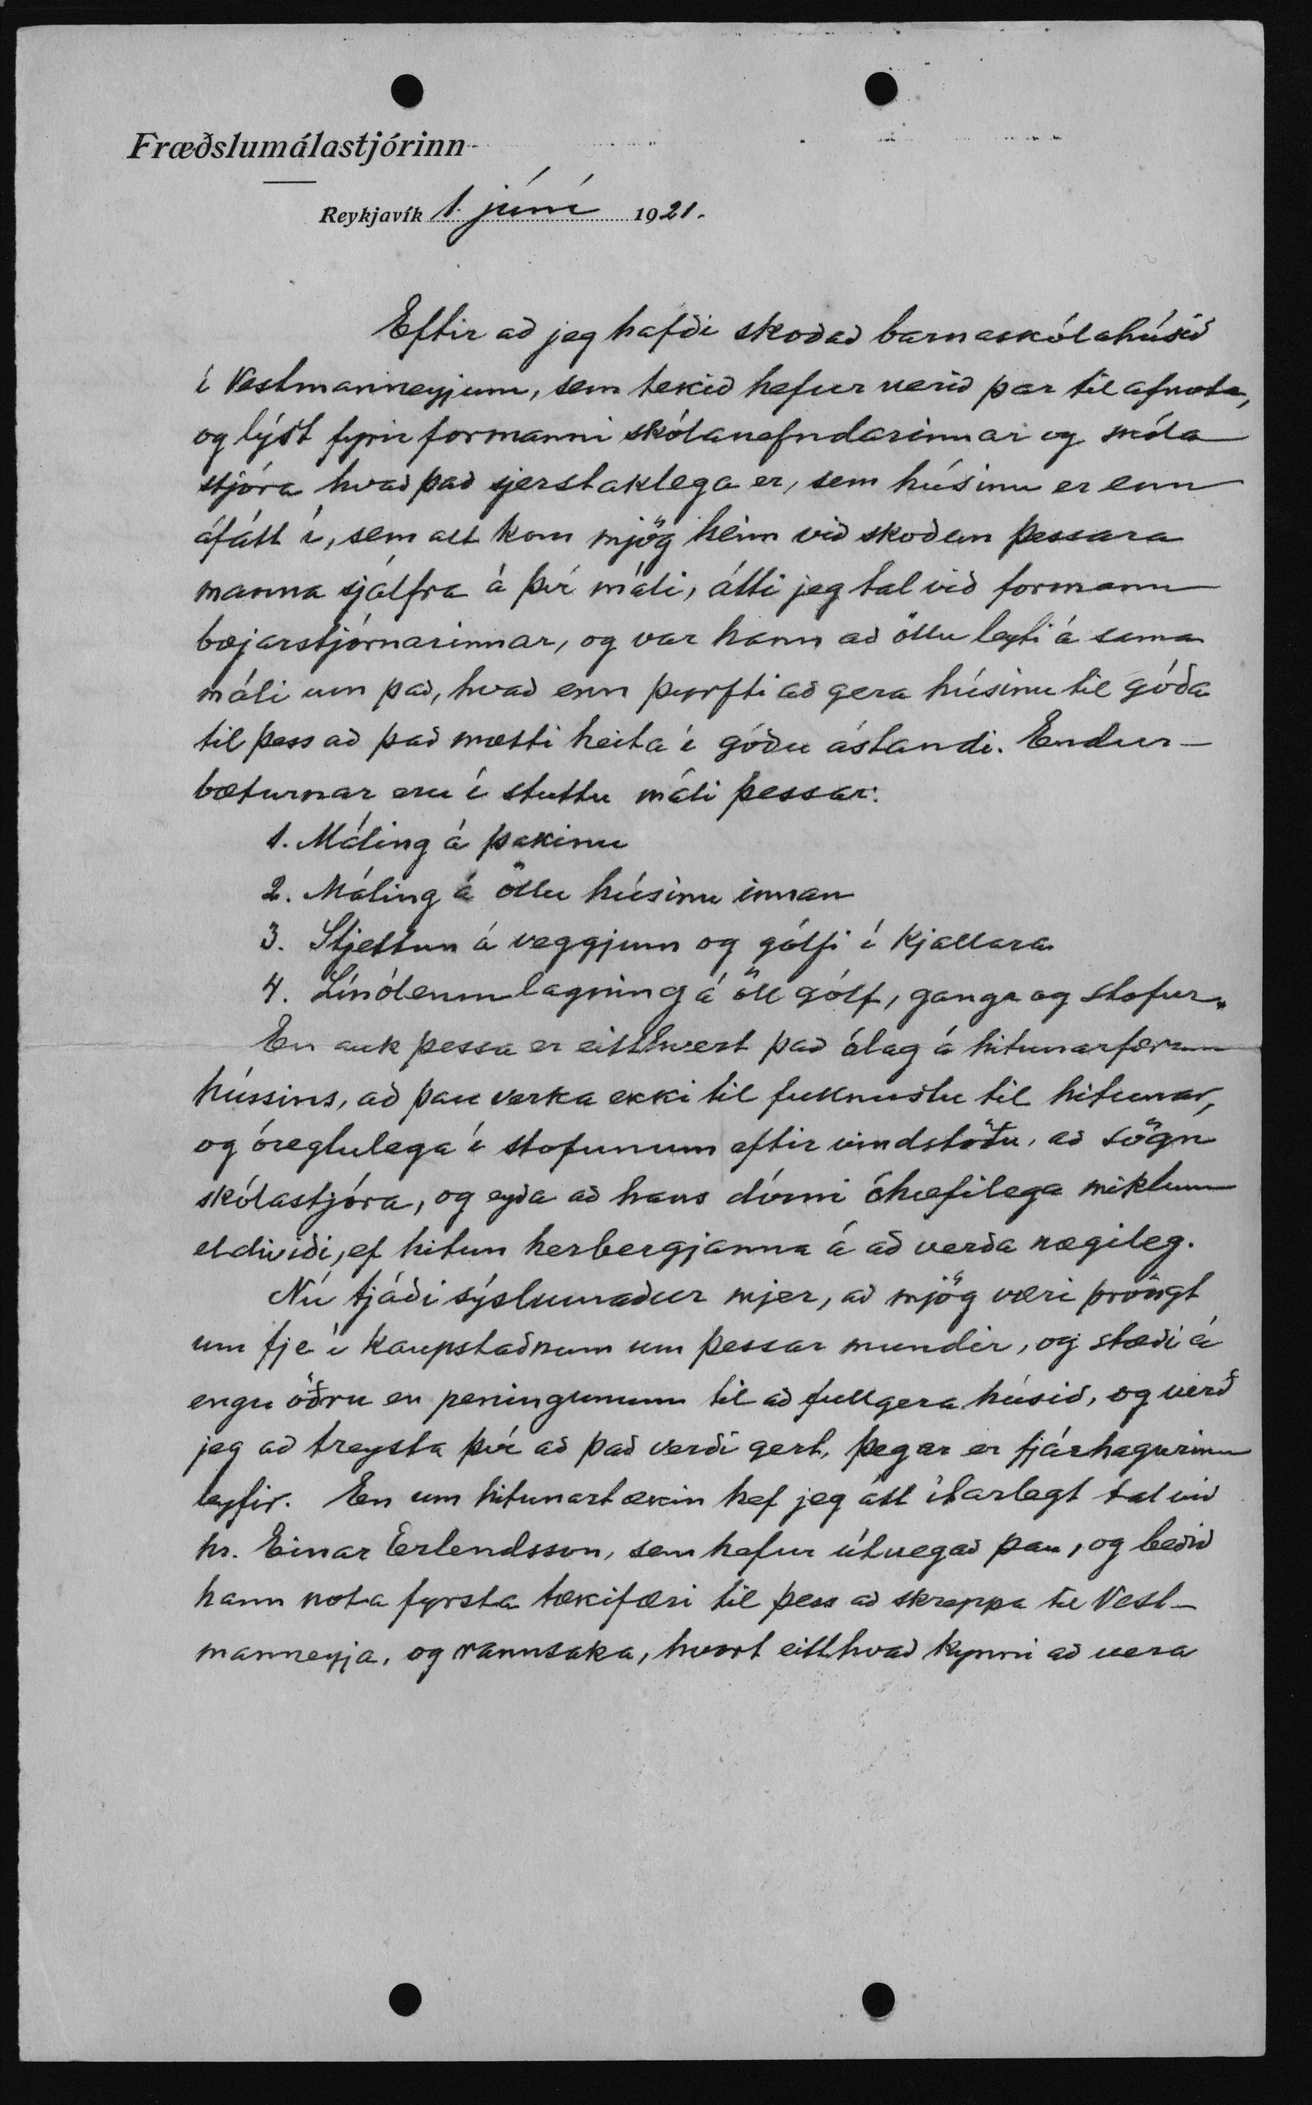 Fræðslumálastjórinn
Reykjavík 1. júní 1921.
Eftir að jeg hafði skoðað barnaskólahúsið
í Vestmanneyjum, sem tekið hefur verið þar til afnota,
og lýst fyrir formanni skólanefndarinnar og skóla
stjóra hvað það sjerstaklega er, sem húsinu er enn
áfátt í, sem alt kom mjög heim við skoðun þessara
manna sjálfra á því máli, átti jeg tal við formann
bæjarstjórnarinnar, og var hann að öllu leyti á sama
máli um það, hvað enn þyrfti að gera húsinu til góða
til þess að það mætti heita í góðu ástandi. Endur-
bæturnar eru í stuttu máli þessar:
1. Máling á þakinu
2. Máling á öllu húsinu innan
3. Sljettun á veggjum og gólfi í kjallara
4. Línóleumlagning á öll gólf, ganga og stofur.
En auk þessa er eitthvert það ólag á hitunarfærum
hússins, að þau verka ekki til fullnustu til hitunar,
og óreglulega í stofunum eftir vindstöðu, að sögn
skólastjóra, og eyða að hans dómi óhæfilega miklum
eldiviði, ef hitun herbergjanna á að verða nægileg.
Nú tjáði sýslumaður mjer, að mjög væri þröngt
um fje í kaupstaðnum um þessar mundir, og stæði á
engu öðru en peningunum til að fullgera húsið, og verð
jeg að treysta því að það verði gert, þegar er fjárhagurinn
leyfir. En um hitunartækin hef jeg átt ítarlegt tal við
hr. Einar Erlendsson, sem hefur útvegað þau, og beðið
hann nota fyrsta tækifæri til þess að skreppa til Vest-
manneyja, og rannsaka, hvort eitthvað kynni að vera